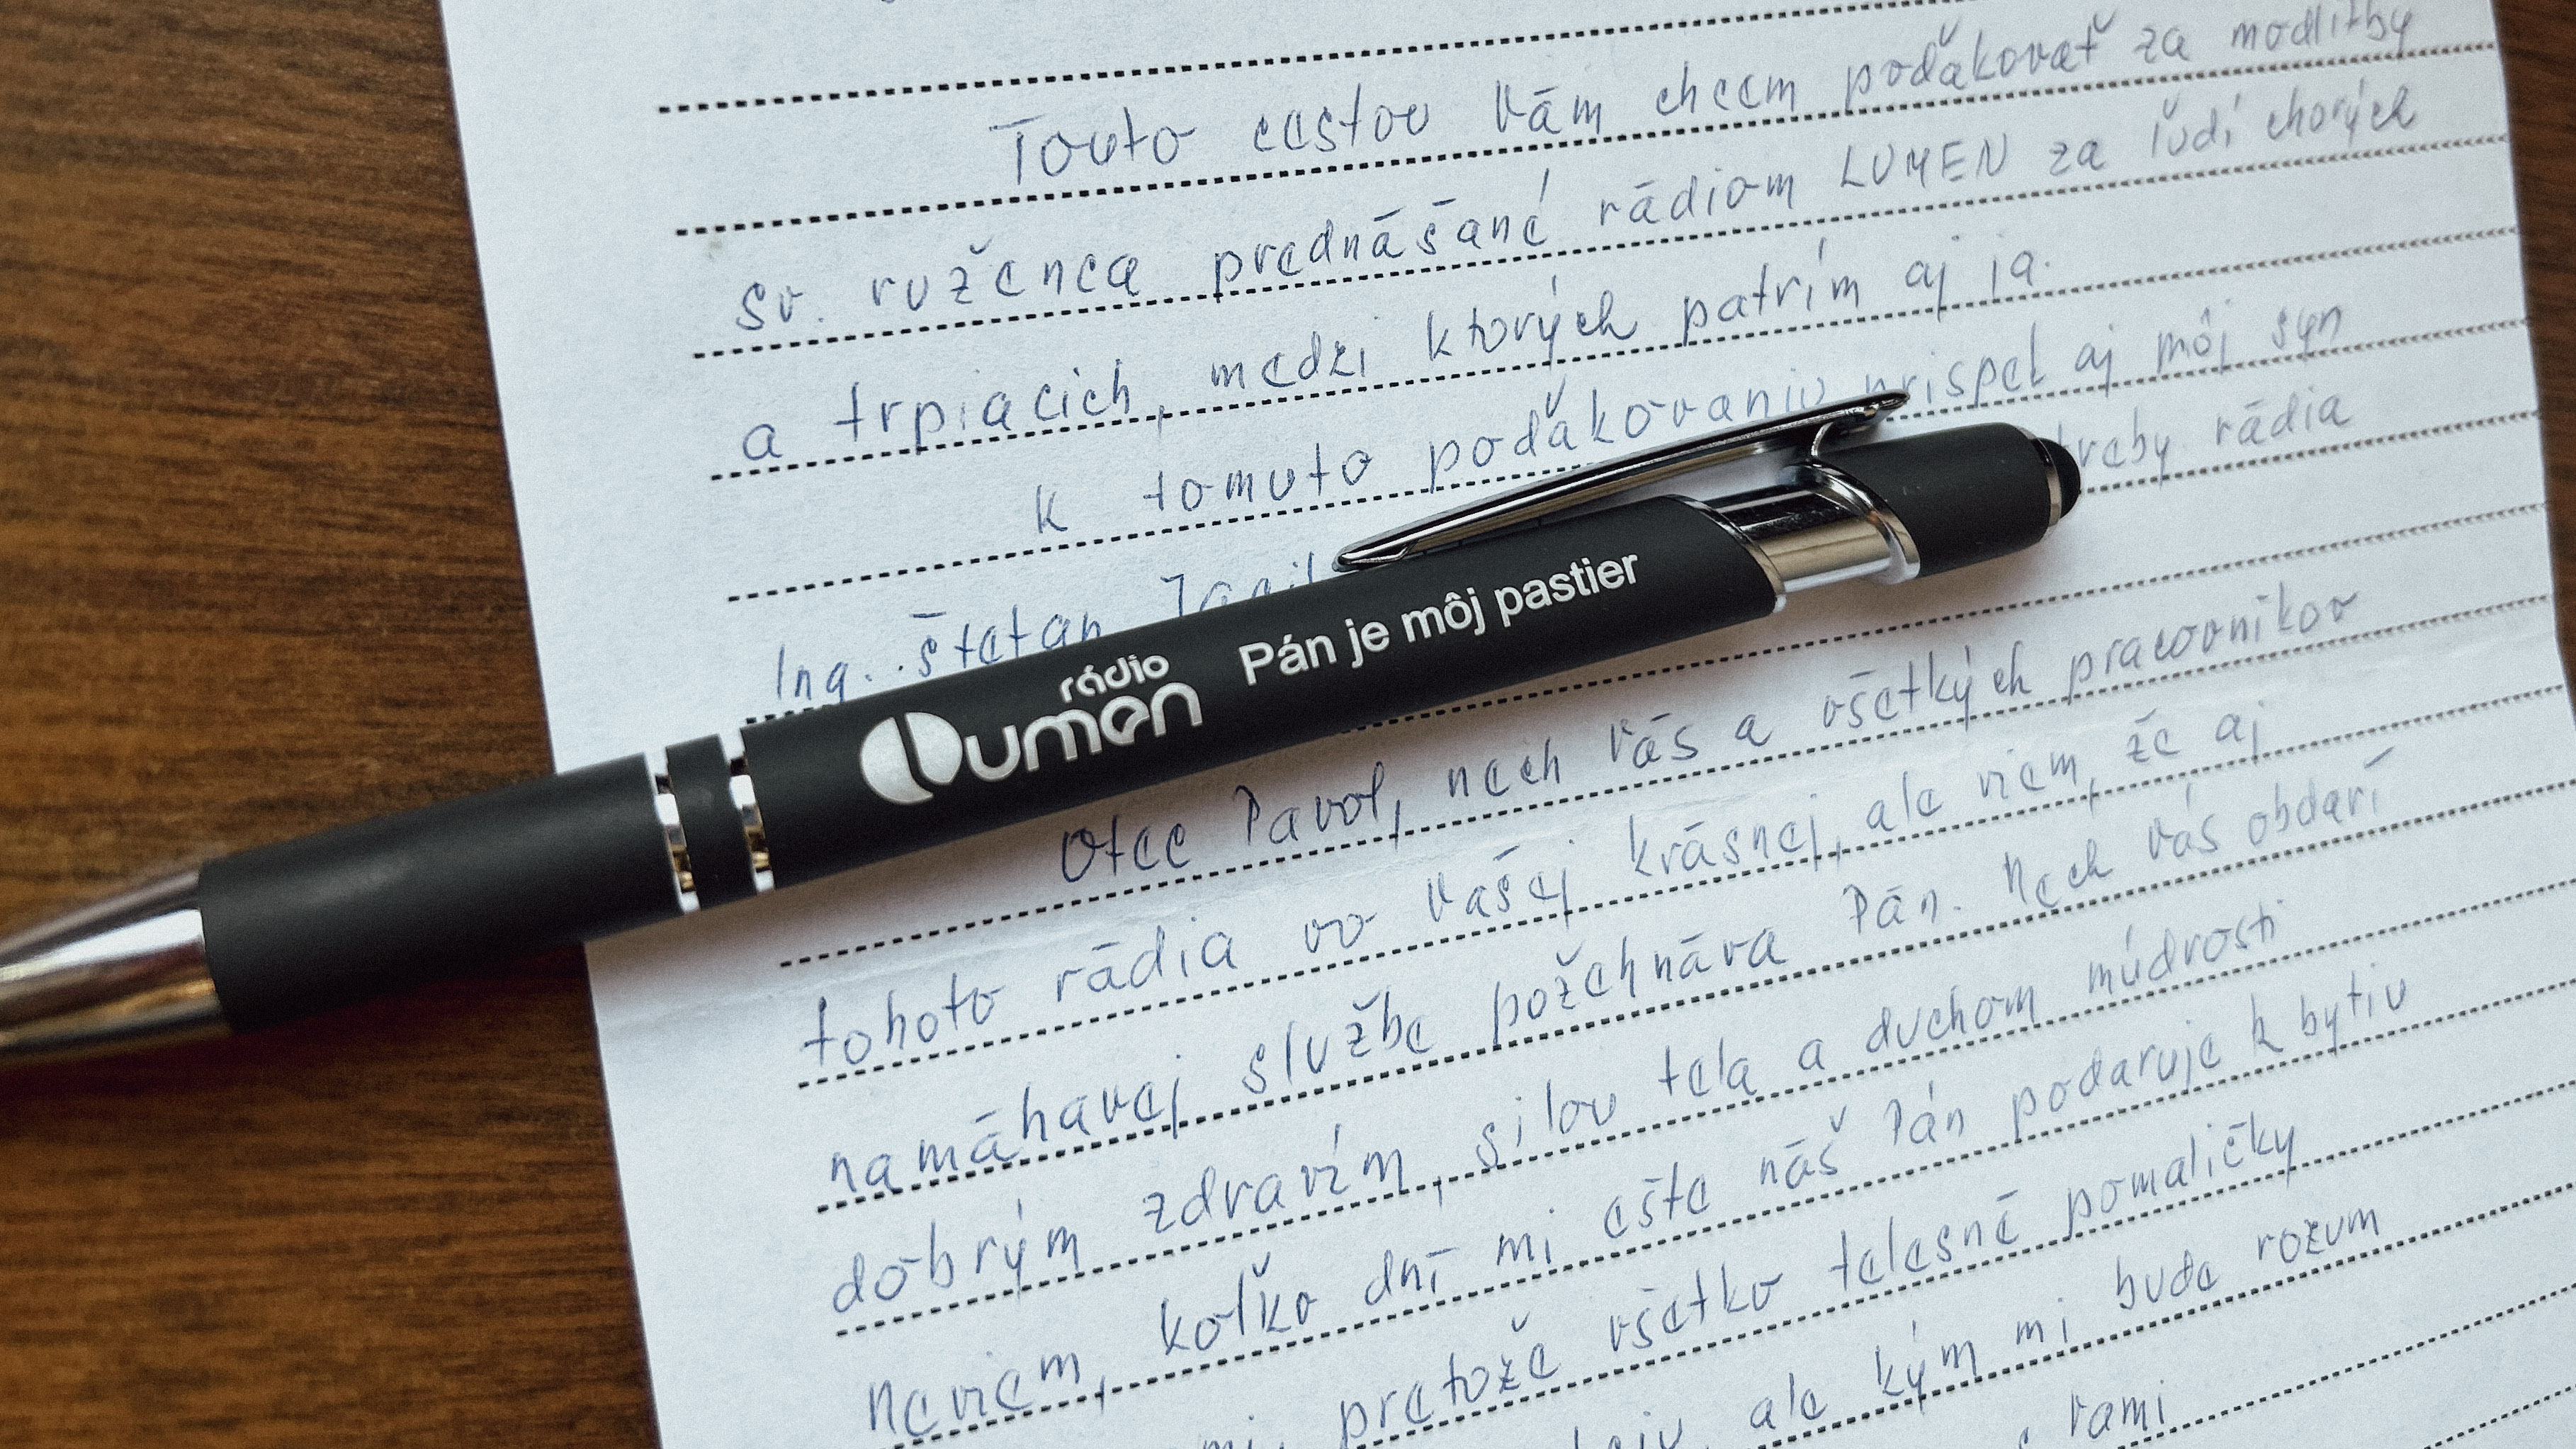 Touto cestou Vám chcem poďakovať za modlitby
sv. ruženca prednášané rádiom LUMEN za ľudí chorých
a trpiacich, medzi ktorých patrím aj ja.
K tomuto poďakovaniu prispel aj môj syn
Ing. Štefan
rádia
rádio
Lumen
Pán je môj pastier
Otec Pavol, nech Vás a všetkých pracovníkov
tohoto rádia vo Vašej krásnej, ale viem, že aj
namáhavej službe požehnáva Pán. Nech Vás obdarí
dobrým zdravím, silou tela a duchom múdrosti
neviem, koľko dní mi ešte náš Pán podaruje k bytiu
pretože všetko telesné pomaličky
ale kým mi bude rozum
Vami